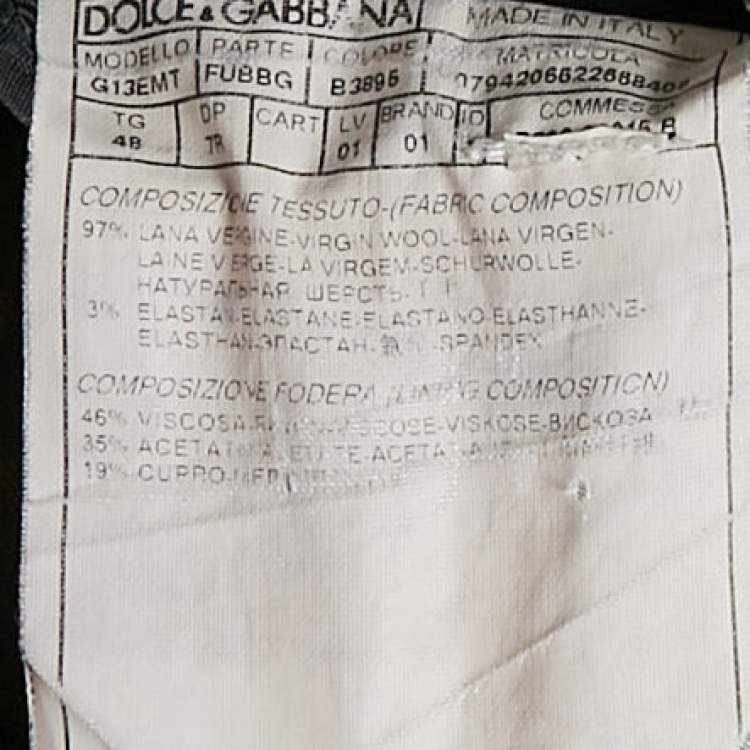 DOLCE & GABBANA MADE IN ITALY
MODELLO PARTE COLORE MATRICOLA
G13EMT FUBBG B3896
TG DP CART LV BRAND ID COMMESSA
48 TR 01 01
COMPOSIZIONE TESSUTO-(FABRIC COMPOSITION)
97% LANA VERGINE-VIRGIN WOOL-LANA VIRGEN-
LAINE VIERGE-LA VIRGEM-SCHURWOLLE-
НАТУРАЛЬНАЯ ШЕРСТЬ-
3% ELASTAN-ELASTANE-ELASTANO-ELASTHANNE-
ELASTHAN-ЭЛАСТАН- -SPANDEX
COMPOSIZIONE FODERA (LINING COMPOSITION)
46% VISCOSA- VISCOSE-VISKOSE-ВИСКОЗА
35% ACETATO- ACETATE-ACETAT-
19% CUPRO-